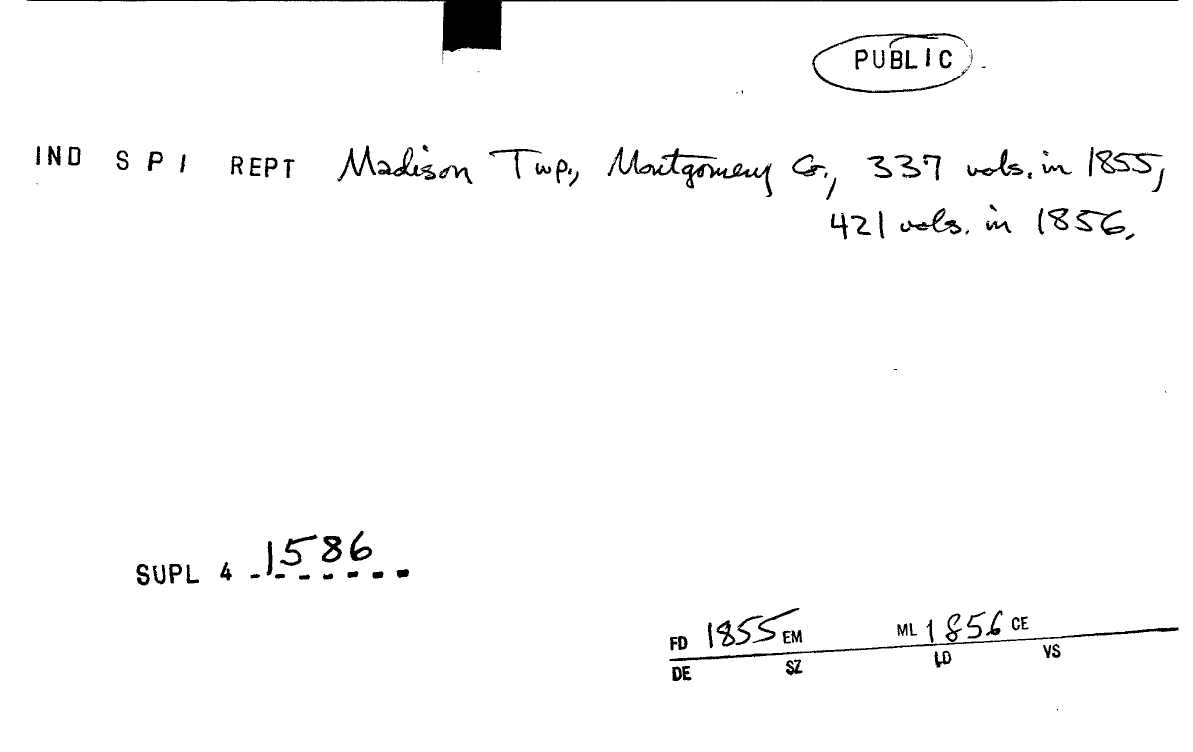 PUBLIC
IND S P I REPT Madison Twp., Montgomery Co., 337 vols. in 1855,
421 vols. in 1856.
SUPL 4 1586
FD 1855 EM ML 1856 CE
DE SZ LD VS